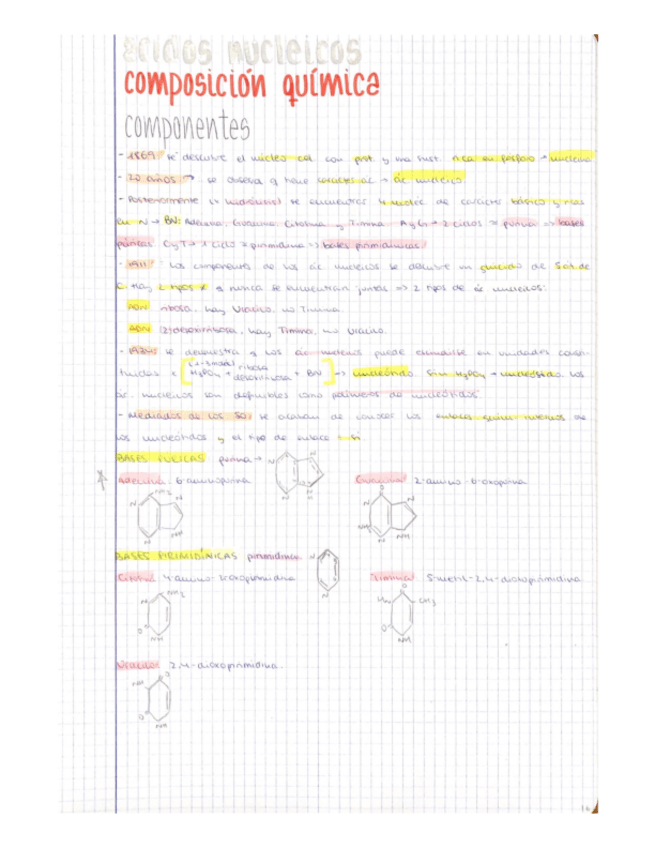 ácidos nucleicos
composición química
componentes
- 1869: se descubre el núcleo cel. con prot. y una sust. rica en fósforo → nucleína
- 20 años → se observa q tiene carácter ác → ác nucleico.
- Posteriormente se encuentran 4 moléc. de carácter básico y ricas
en N → BN: Adenina, Guanina, Citosina y Timina. A y G → 2 ciclos = purina => bases
púricas. C y T → 1 ciclo = pirimidina => bases pirimidínicas.
- 1911: Los componentes de los ác nucleicos se
C. Hay 2 tipos y nunca se encuentran juntas => 2 tipos de ác nucleicos:
ARN ribosa, hay Uracilo, no Timina.
ADN 2'desoxirribosa, hay Timina, no Uracilo.
- se demuestra q los ác nucleicos puede en unidades consti-
tuidas x [H3PO4 + ribosa desoxirribosa + BN] => nucleótido. Sin H3PO4 → nucleósido. Los
ác. nucleicos son definibles como polímeros de nucleótidos.
- Mediados de los 50: se acaban de conocer los enlaces quím. internos de
los nucleótidos y el tipo de enlace
BASES PÚRICAS purina → N N N N
Adenina: 6-aminopurina Guanina: 2-amino-6-oxopurina
NH2 N N N NH O N NH N NH
BASES PIRIMIDÍNICAS pirimidina: N N
Citosina: 4-amino-2-oxopirimidina Timina: 5-metil-2,4-dioxopirimidina
NH2 N O NH O HN CH3 O NH
Uracilo: 2,4-dioxopirimidina.
O NH O NH